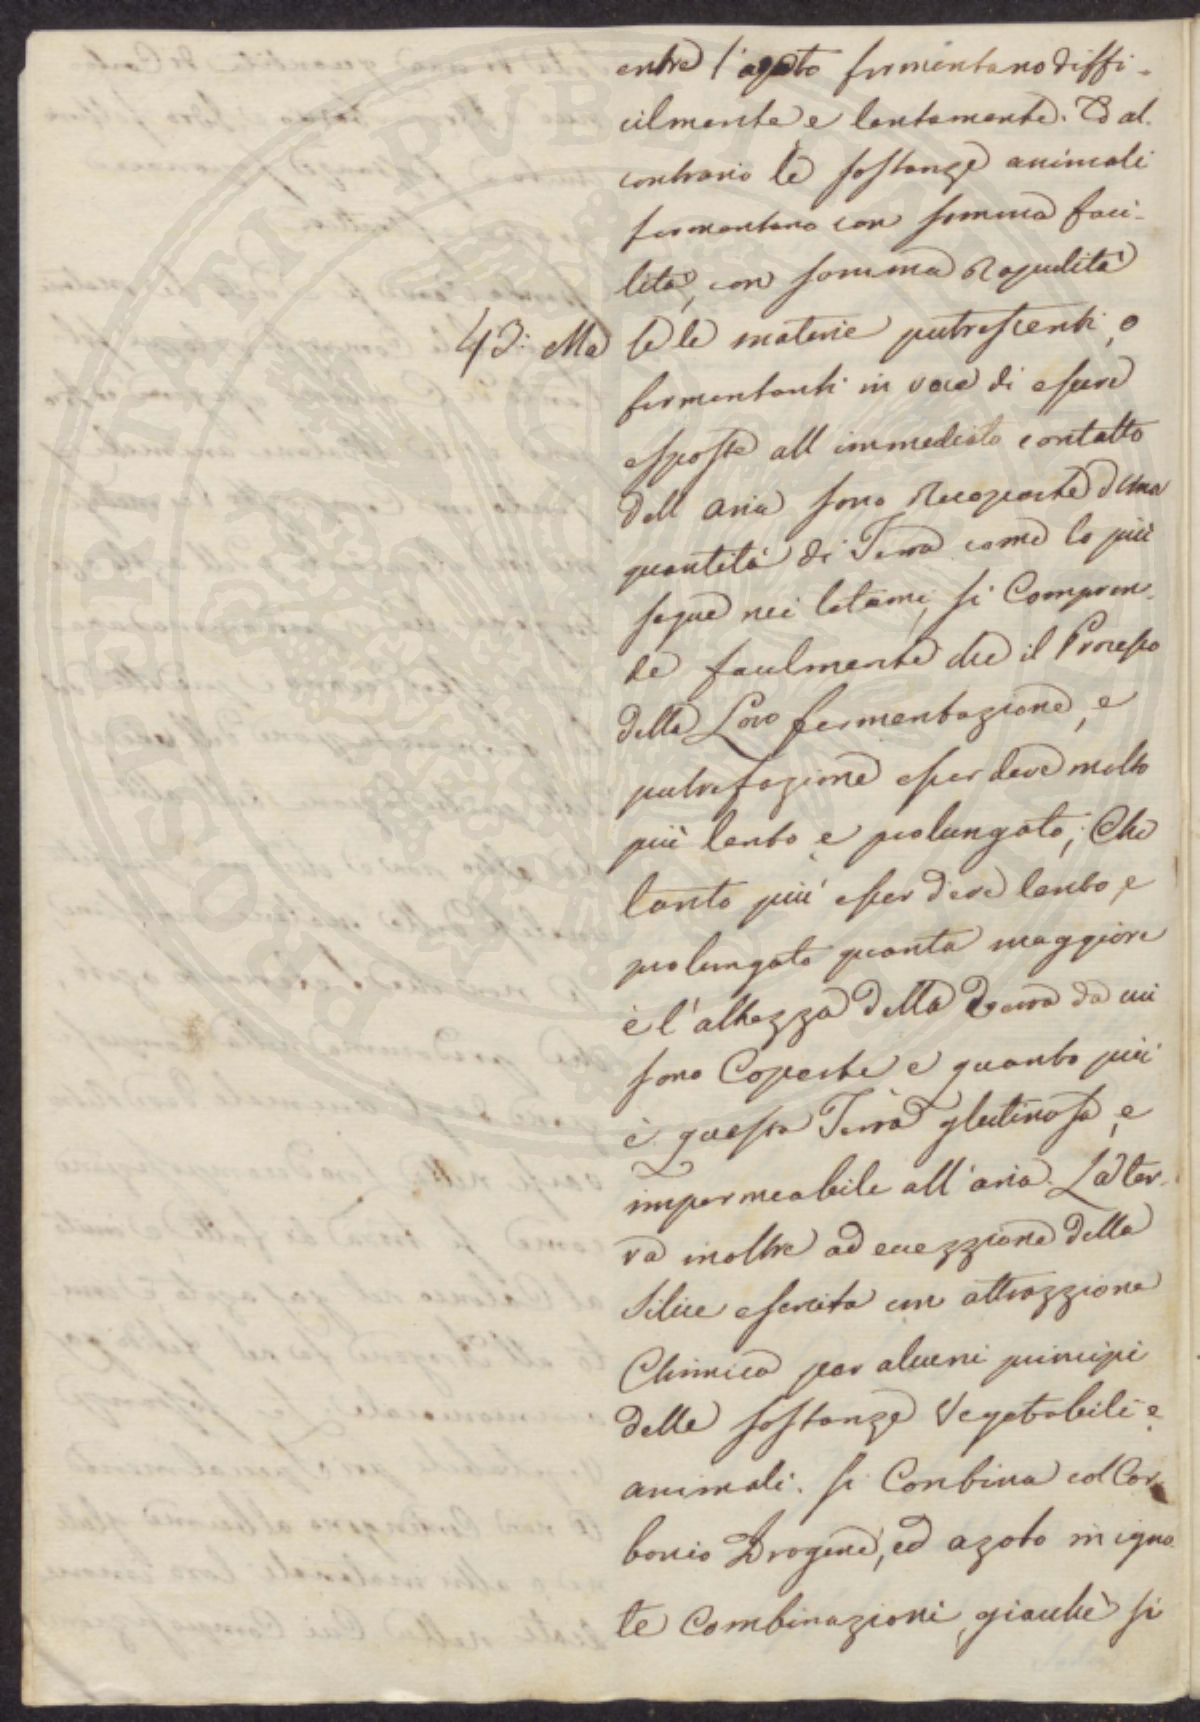 entra l'azoto fermentano diffi-
cilmente e lentamente. Ed al
contrario le sostanze animali
fermentano con somma faci-
lità, con somma Rapidità
43: Ma se le materie putrescenti, o
fermentanti in vece di essere
esposte all immediato contatto
dell aria sono Recoperte d una
quantità di Terra come lo più
segue nei letami, si Compren-
de facilmente che il Processo
della Loro fermentazione, e
putrefazione esser deve molto
più lento e prolungato; Che
tanto più esser deve lento, e
prolungato quanta maggiore
è l'altezza della Terra da cui
sono Coperte e quanto più
è questa Terra glutinosa, e
impermeabile all'aria. La ter-
ra inoltre ad ecezzione della
Silice esercita un attrazzione
Chimica par alcuni principi
delle sostanze Vegetabili e
animali. Si Conbina col Car-
bonio Idrogene, ed azoto in igno
te Combinazioni, giacchè si